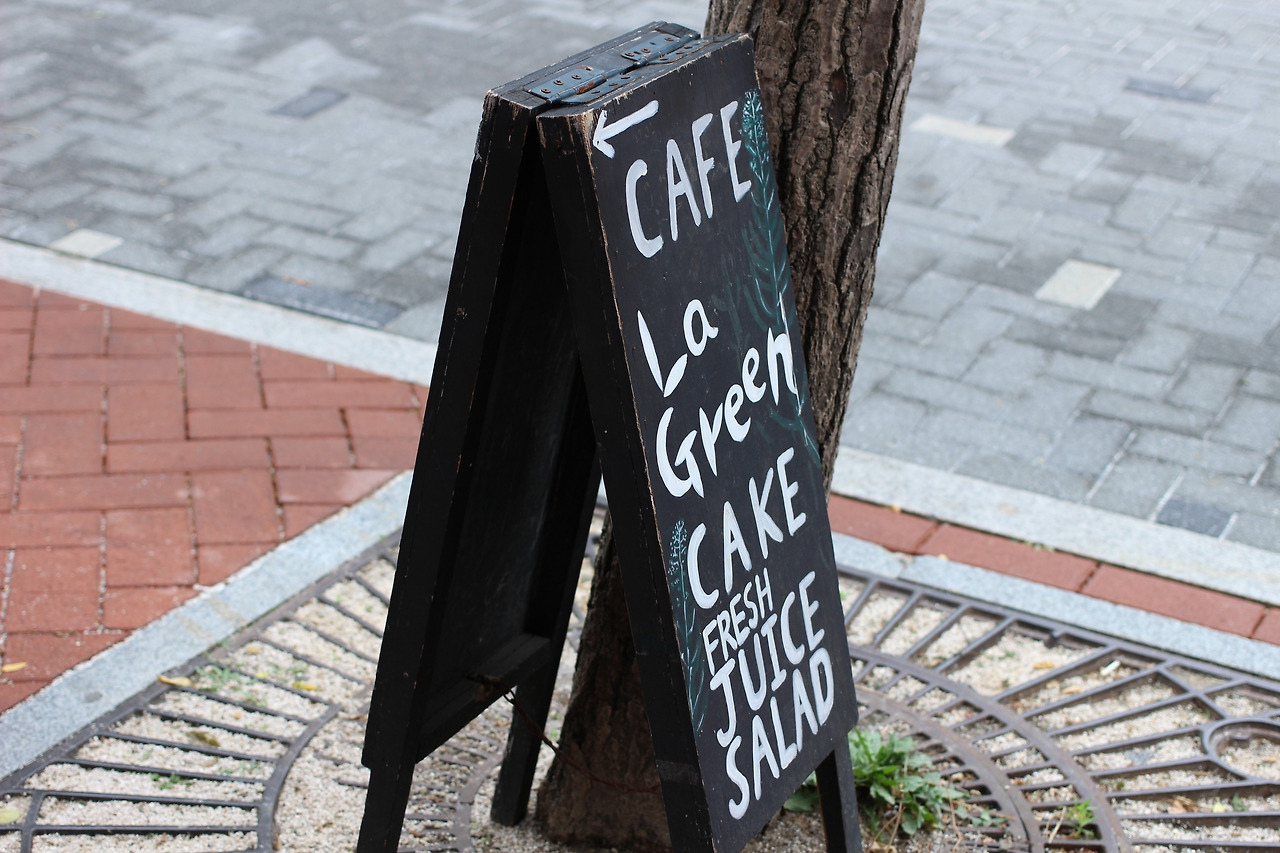 CAFE
La
Green
CAKE
FRESH
JUICE
SALAD